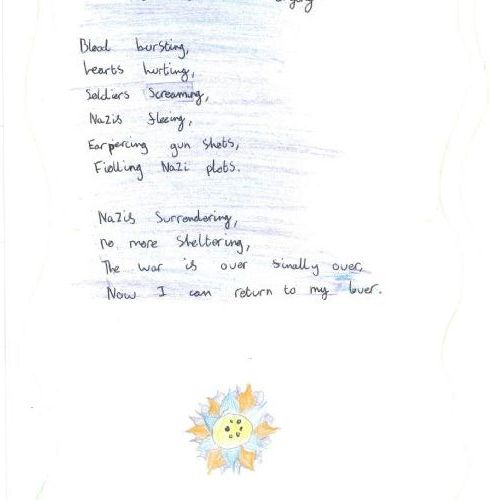 Blood bursting,
hearts hurting,
Soldiers Screaming,
Nazis fleeing,
Earpercing gun shots,
Nazi plots.

Nazis Surrendering,
no more Sheltering,
The war is over finally over,
Now I can return to my lover.